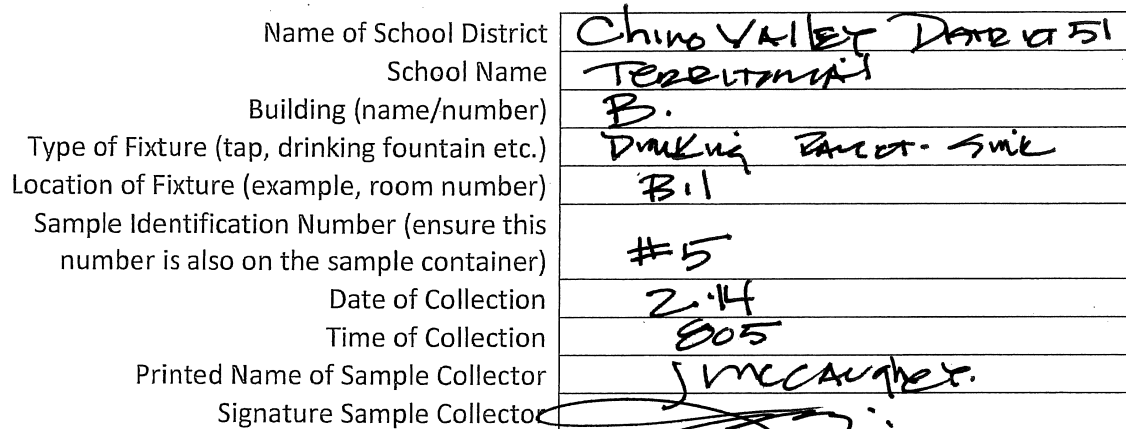 Name of School District Chino Valley District 51
School Name Territorial
Building (name/number) B.
Type of Fixture (tap, drinking fountain etc.) Drinking Faucet - Sink
Location of Fixture (example, room number) B.1
Sample Identification Number (ensure this
number is also on the sample container) #5
Date of Collection 2.14
Time of Collection 805
Printed Name of Sample Collector J McCaughey.
Signature Sample Collector